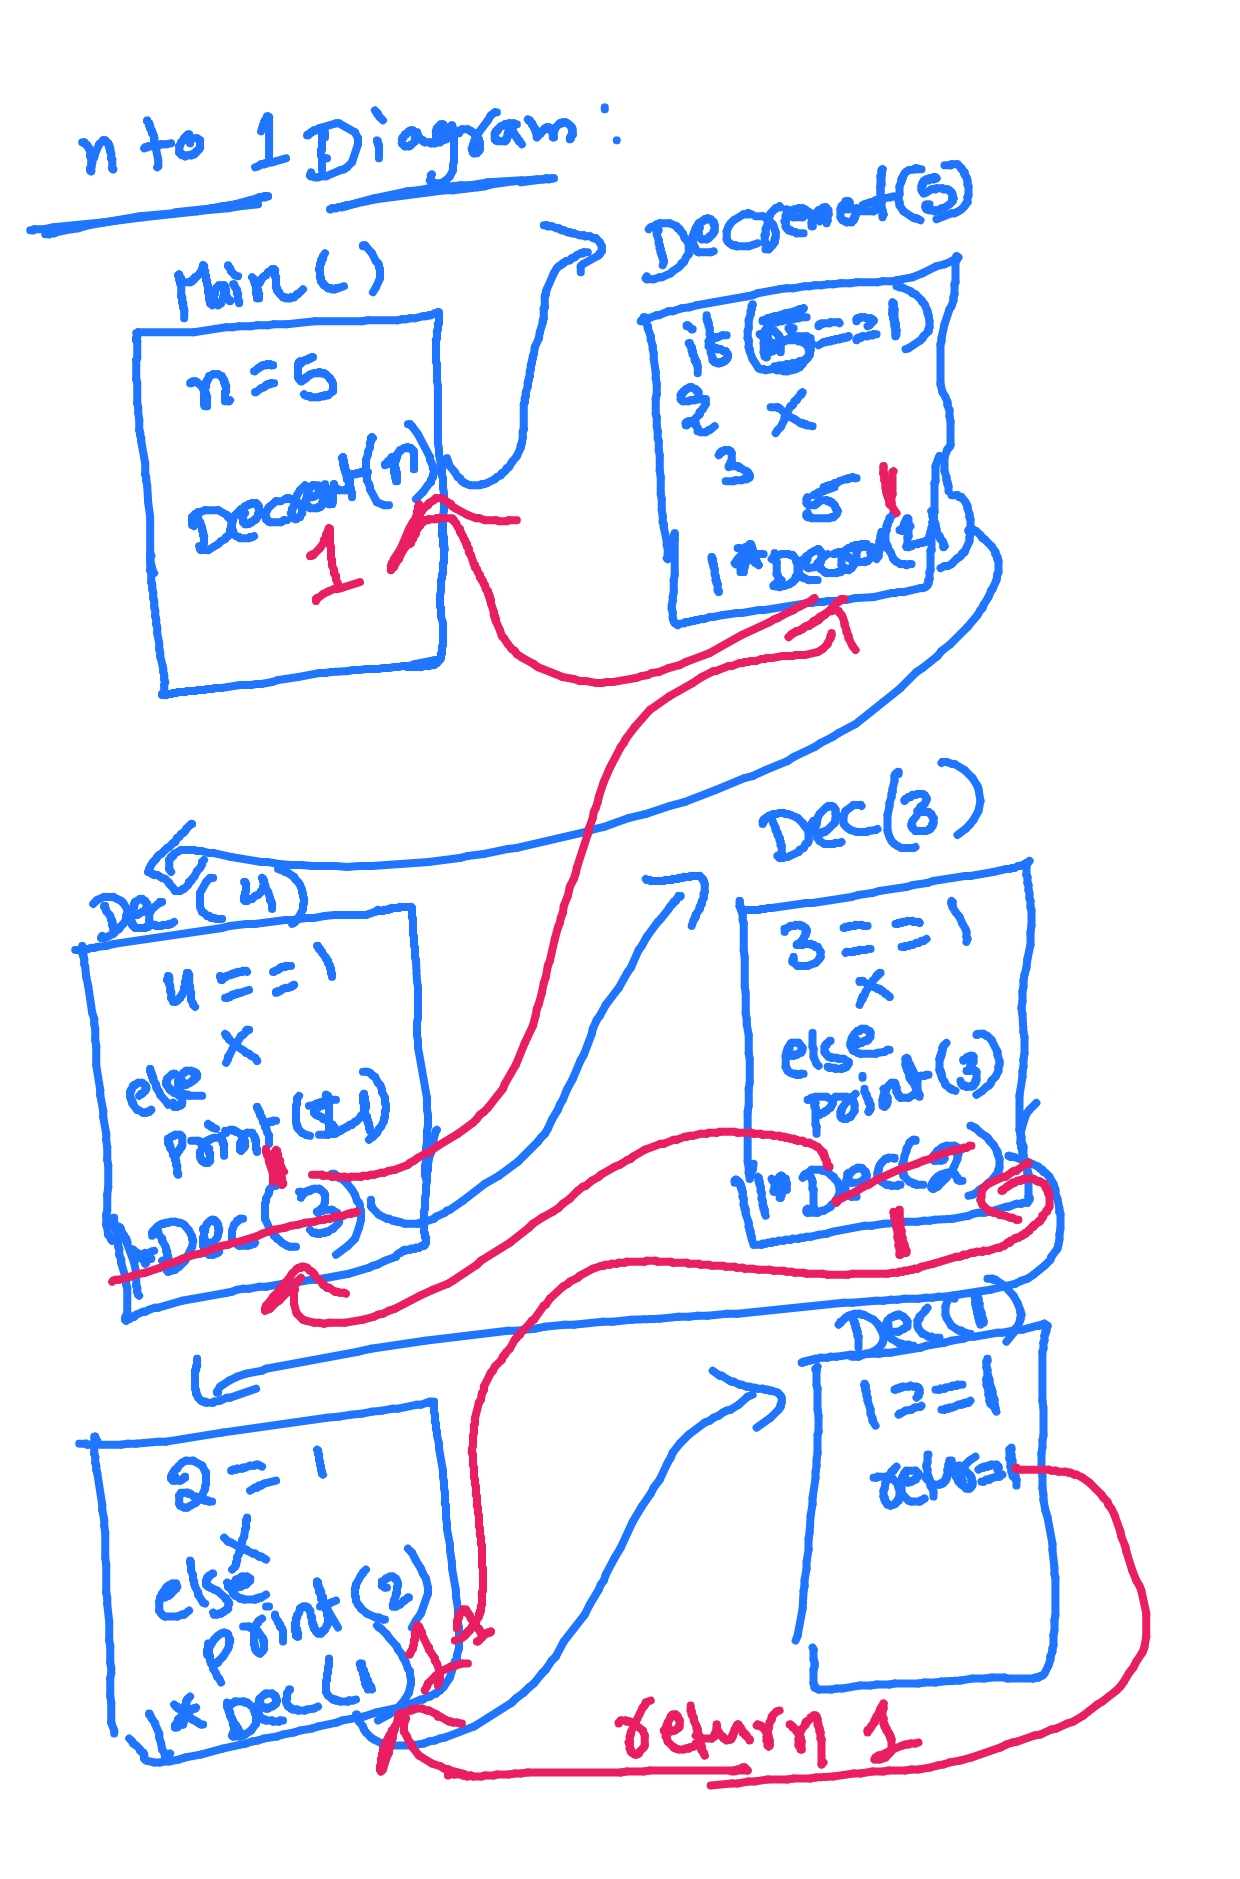 n to 1 Diagram :
Main ( )
n = 5
Decrement(n)
1
Decrement(5)
if (5 == 1)
2 x
3
5 1
1 * Decre(4)
Dec (4)
4 == 1
x
else
print (4)
1
1 * Dec (3)
Dec (3)
3 == 1
x
else
print (3)
1 * Dec (2)
1
2 = 1
x
else
print (2)
1 * Dec (1)
1
Dec (1)
1 == 1
return 1